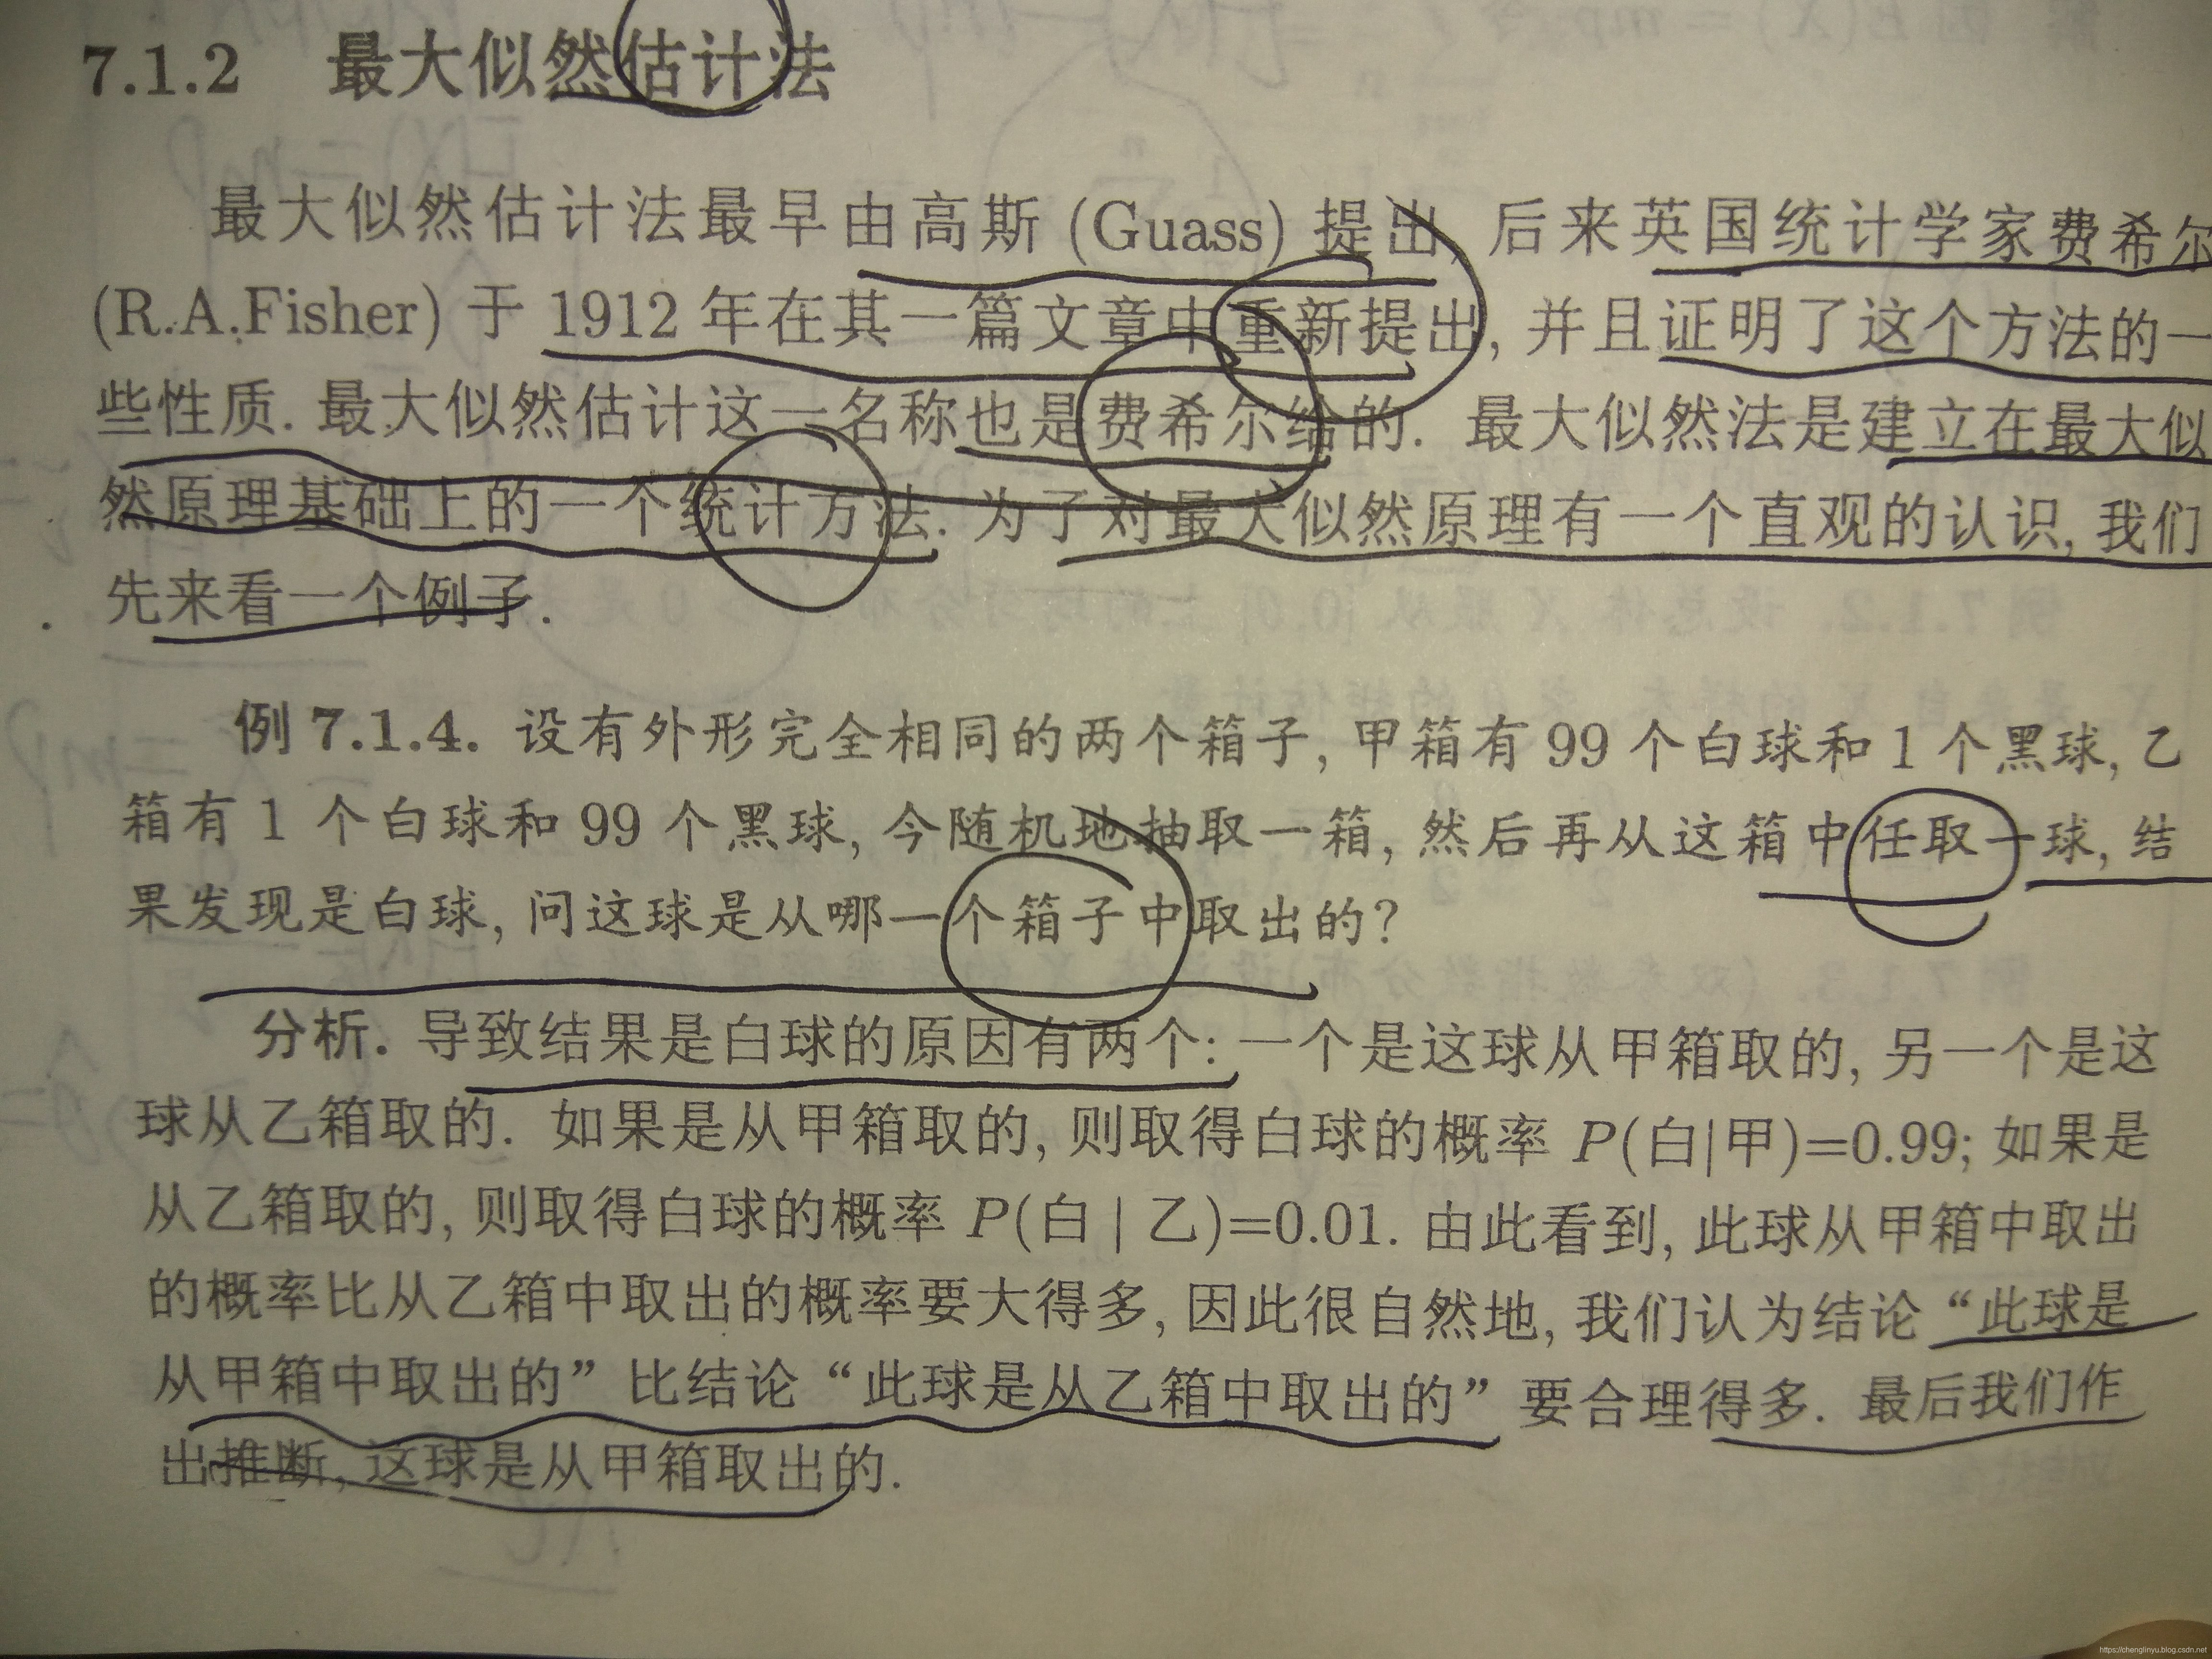 7.1.2 最大似然估计法
最大似然估计法最早由高斯 (Guass) 提出, 后来英国统计学家费希尔
(R.A.Fisher) 于 1912 年在其一篇文章中重新提出, 并且证明了这个方法的一
些性质. 最大似然估计这一名称也是费希尔给的. 最大似然法是建立在最大似
然原理基础上的一个统计方法. 为了对最大似然原理有一个直观的认识, 我们
先来看一个例子.
例 7.1.4. 设有外形完全相同的两个箱子, 甲箱有 99 个白球和 1 个黑球, 乙
箱有 1 个白球和 99 个黑球, 今随机地抽取一箱, 然后再从这箱中任取一球, 结
果发现是白球, 问这球是从哪一个箱子中取出的?
分析. 导致结果是白球的原因有两个: 一个是这球从甲箱取的, 另一个是这
球从乙箱取的. 如果是从甲箱取的, 则取得白球的概率 P(白|甲)=0.99; 如果是
从乙箱取的, 则取得白球的概率 P(白 | 乙)=0.01. 由此看到, 此球从甲箱中取出
的概率比从乙箱中取出的概率要大得多, 因此很自然地, 我们认为结论 “此球是
从甲箱中取出的” 比结论 “此球是从乙箱中取出的” 要合理得多. 最后我们作
出推断, 这球是从甲箱取出的.
https://chenglinyu.blog.csdn.net